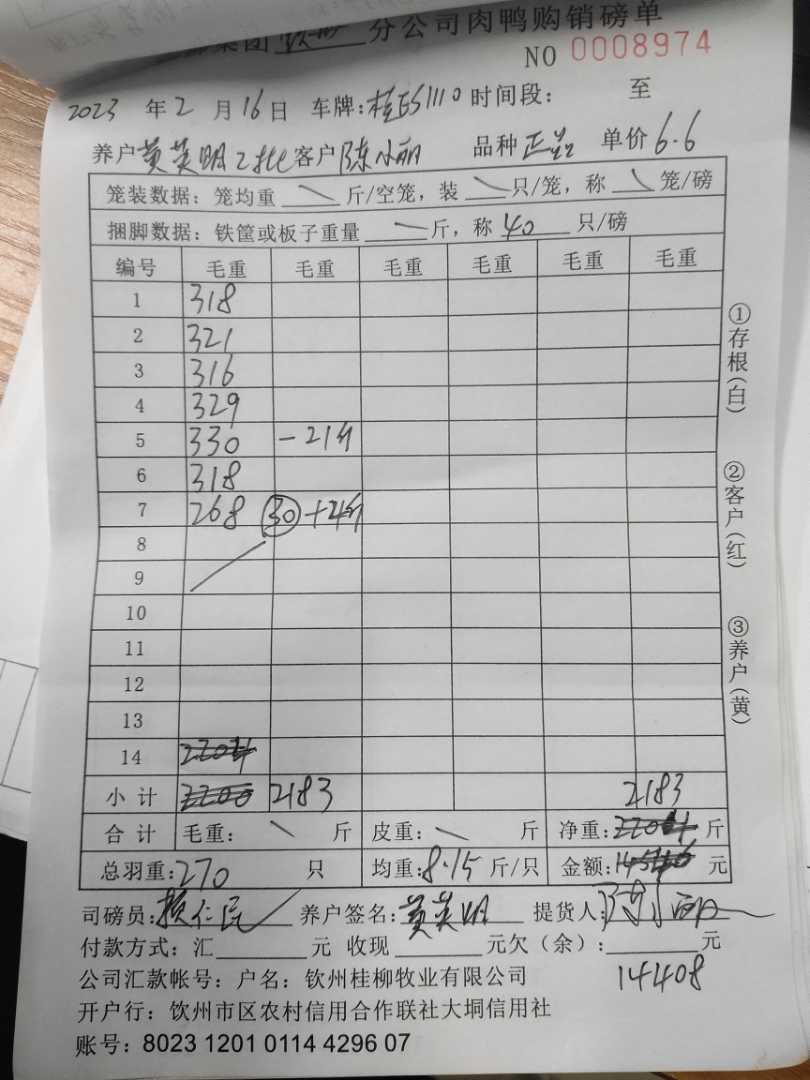 集团 分公司肉鸭购销磅单
NO 0008974
2023 年 2 月 16 日 车牌: 1110 时间段: 至
养户 黄英明 2批 客户 陈小丽 品种 正品 单价 6.6
笼装数据: 笼均重 \ 斤/空笼, 装 \ 只/笼, 称 \ 笼/磅
捆脚数据: 铁筐或板子重量 \ 斤, 称 40 只/磅
编号 毛重 毛重 毛重 毛重 毛重 毛重
1 318
2 321
3 316
4 329
5 330 -21斤
6 318
7 268 30 +4斤
8
9
10
11
12
13
14 2204
小计 2200 2183 2183
合计 毛重: \ 斤 皮重: \ 斤 净重: 斤
总羽重: 270 只 均重: 8.15 斤/只 金额: 元
司磅员: 颜仁民 养户签名: 黄英明 提货人: 陈小丽
付款方式: 汇 元 收现 元欠(余): 元
14408
公司汇款帐号: 户名: 钦州桂柳牧业有限公司
开户行: 饮州市区农村信用合作联社大垌信用社
账号: 8023 1201 0114 4296 07
①存根(白)
②客户(红)
③养户(黄)